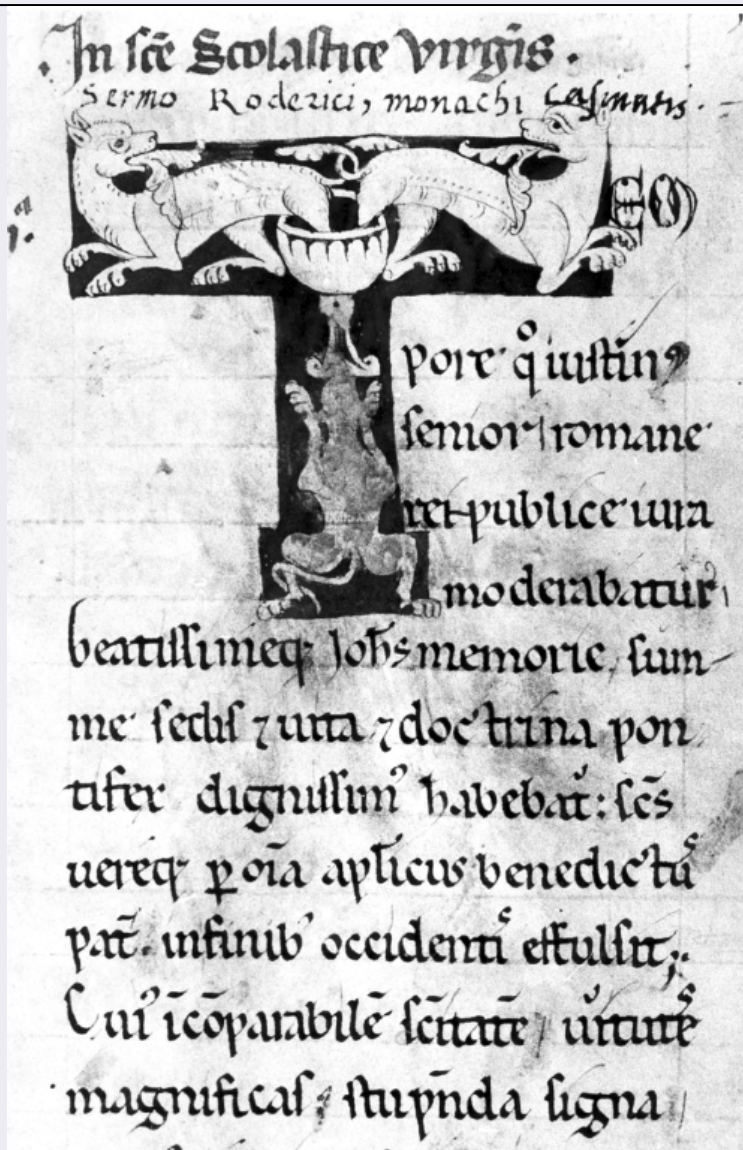 In sc̄e Scolastice virgīs.
Sermo Roderici, monachi Casinatis.
T ĒO
pore qͦ iustinꝰ
senior romane
rei publice iura
moderabatur
beatissimeq; Joħs memorie, sum-
me sedis ⁊ uita ⁊ doctrina pon
tifex dignissimꝰ habebat᷑: sc̄s
uereq; ꝑ oīa apl̄icus benedictꝰ
pat̄. in finibꝰ occidentis effulsit;
Cuiꝰ īcōparabilē sc̄itatē uirtutēs
magnificas; stupn̄da signa